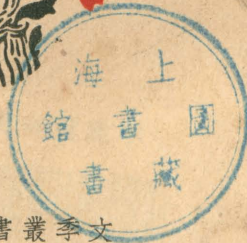 上海
圖書館
藏書
文季叢書